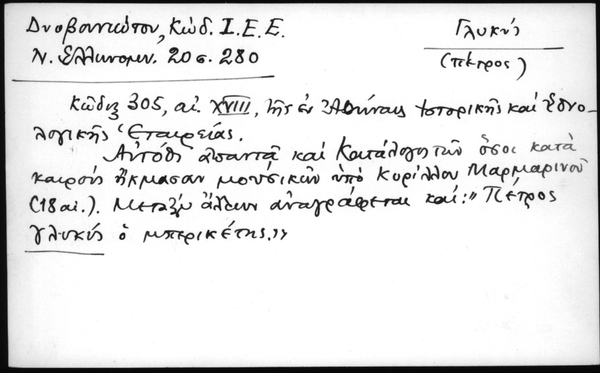 Δυοβουνιώτου, Κώδ. Ι.Ε.Ε.
Γλυκύς
Ν. Ἑλληνομν. 20 σ. 280
(Πέτρος)
Κῶδιξ 305, αἰ. XVIII, τῆς ἐν Ἀθήναις Ἱστορικῆς καὶ Ἐθνο-
λογικῆς Ἑταιρείας.
Αὐτόθι ἀπαντᾷ καὶ Κατάλογος τῶν ὅσοι κατὰ
καιροὺς ἤκμασαν μουσικῶν ὑπὸ Κυρίλλου Μαρμαρινοῦ
(18 αἰ.). Μεταξὺ ἄλλων ἀναγράφεται καὶ: "Πέτρος
γλυκύς ὁ μπερικέτης."